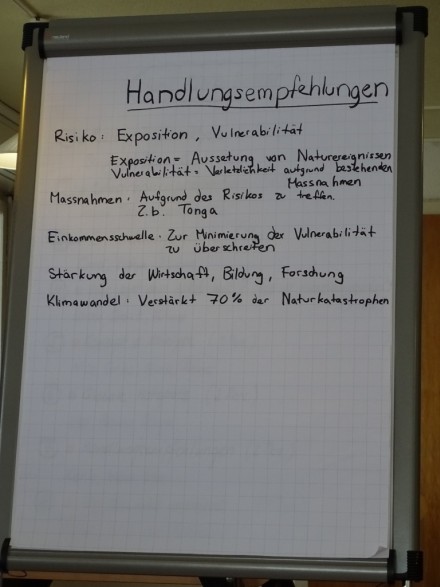 Handlungsempfehlungen
Risiko: Exposition, Vulnerabilität
Exposition = Aussetung von Naturereignissen
Vulnerabilität = Verletzlichkeit aufgrund bestehenden
Massnahmen
Massnahmen: Aufgrund des Risikos zu treffen.
Z.b. Tonga
Einkommensschwelle: Zur Minimierung der Vulnerabilität
zu überschreiten
Stärkung der Wirtschaft, Bildung, Forschung
Klimawandel: Verstärkt 70% der Naturkatastrophen